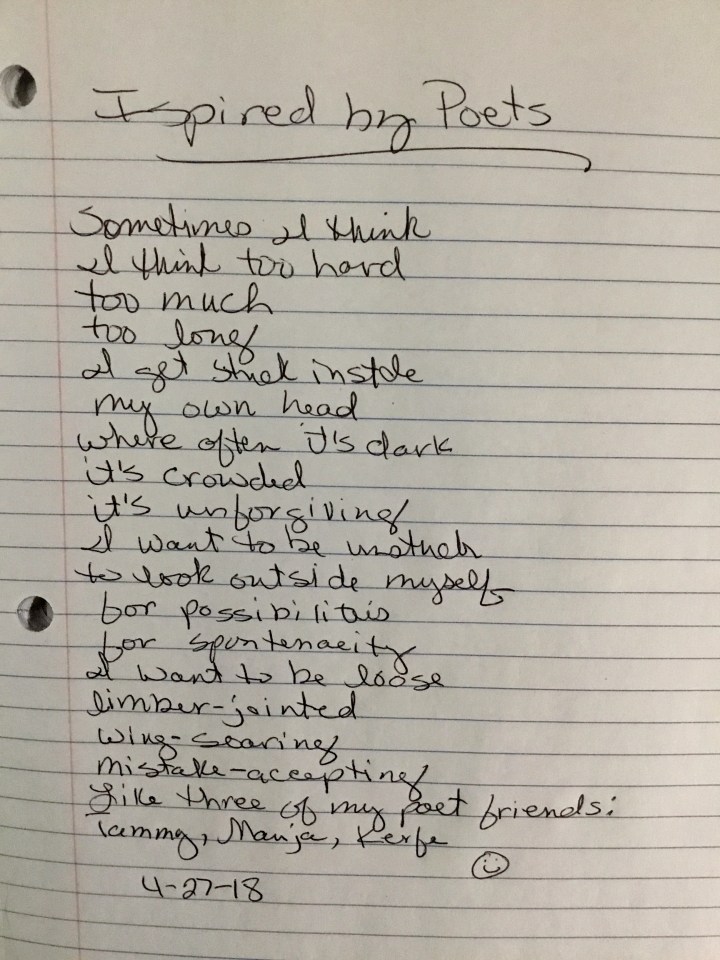 Inspired by Poets
Sometimes I think
I think too hard
too much
too long
I get stuck inside
my own head
where often it's dark
it's crowded
it's unforgiving
I want to be
to look outside myself
for possibilities
for spontenaeity
I want to be loose
limber-jointed
wing-soaring
mistake-accepting
Like three of my poet friends:
Tammy, Manja, Kerfe
4-27-18